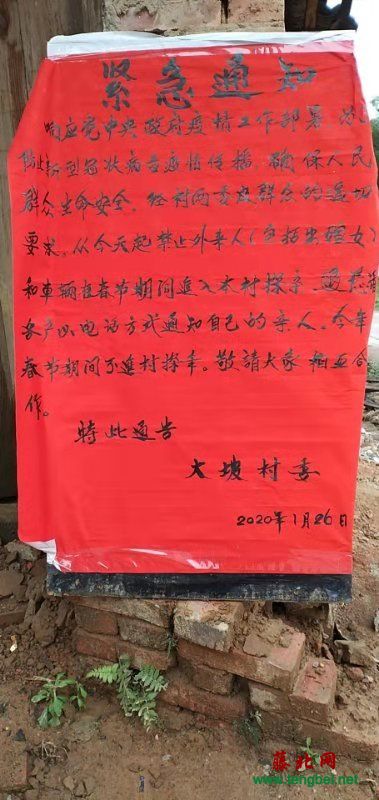 緊急通知
响应党中央政府疫情工作部署 为
防止新型冠状病毒疫情传播，确保人民
群众生命安全，经村两委及群众的迫切
要求，从今天起禁止外来人（包括出嫁女）
和車辆在春节期间進入本村探亲，
客户以电话方式通知自己的亲人，今年
春节期间不進村探亲。敬請大家 相互合
作。
特此通告
大坡村委
2020年1月26日
藤北网
www.tengbei.net